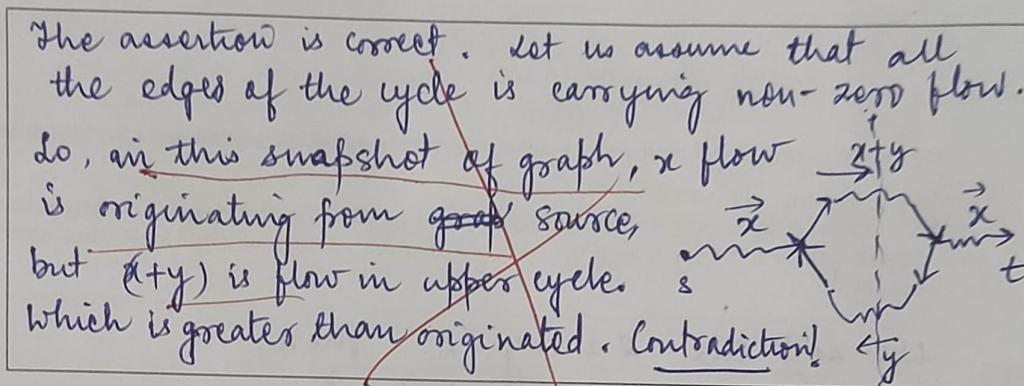 The assertion is correct. Let us assume that all
the edges of the cycle is carrying non-zero flow.
So, in this snapshot of graph, x flow
is originating from source,
but (x+y) is flow in upper cycle.
Which is greater than originated. Contradiction!
x+y
x
x
s
t
y